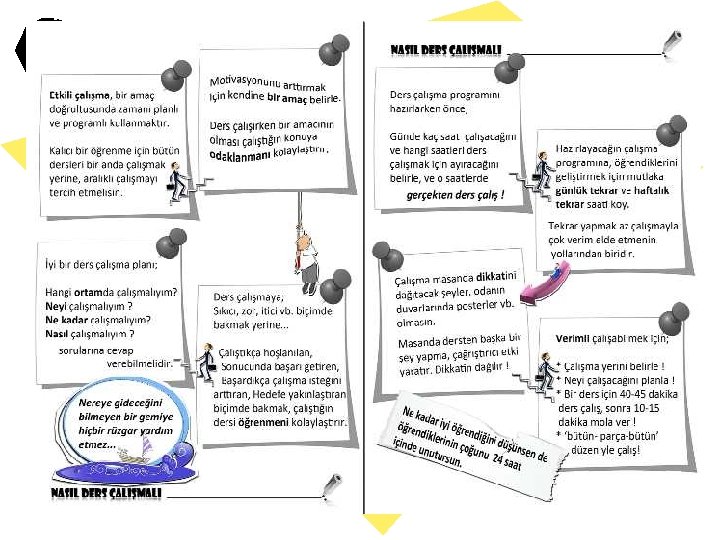 Etkili çalışma, bir amaç
doğrultusunda zamanı planlı
ve programlı kullanmaktır.
Kalıcı bir öğrenme için bütün
dersleri bir anda çalışmak
yerine, aralıklı çalışmayı
tercih etmelisir.
Motivasyonunu arttırmak
için kendine bir amaç belirle.
Ders çalışırken bir amacının
olması çalıştığın konuya
odaklanmanı kolaylaştırır.
İyi bir ders çalışma planı;
Hangi ortamda çalışmalıyım?
Neyi çalışmalıyım ?
Ne kadar çalışmalıyım?
Nasıl çalışmalıyım ?
sorularına cevap
verebilmelidir.
Ders çalışmaya;
Sıkıcı, zor, itici vb. biçimde
bakmak yerine...
Çalıştıkça hoşlanılan,
Sonucunda başarı getiren,
Başardıkça çalışma isteğini
arttıran, Hedefe yakınlaştıran
biçimde bakmak, çalıştığın
dersi öğrenmeni kolaylaştırır.
Nereye gideceğini
bilmeyen bir gemiye
hiçbir rüzgar yardım
etmez...
NASIL DERS ÇALIŞMALI
NASIL DERS ÇALIŞMALI
Ders çalışma programını
hazırlarken önce,
Günde kaç saat çalışacağını
ve hangi saatleri ders
çalışmak için ayıracağını
belirle, ve o saatlerde
gerçekten ders çalış !
Haz rlayacağın çalışma
programına, öğrendiklerini
geliştirmek için mutlaka
günlük tekrar ve haftalık
tekrar saati koy.
Tekrar yapmak az çalışmayla
çok verim elde etmenin
yollarından biridir.
Çalışma masanca dikkatini
dağıtacak şeyler, odanın
duvarlarında posterler vb.
olmasın.
Masanda dersten başka bir
şey yapma, çağrıştırıcı etki
yaratır. Dikkatin dağılır !
Verimli çalışabilmek için;
* Çalışma yerini belirle !
* Neyi çalışacağını planla !
* Bir ders için 40-45 dakika
ders çalış, sonra 10-15
dakika mola ver !
* ‘bütün- parça-bütün’
düzen yle çalış!
Ne kadar iyi öğrendiğini düşünsen de
öğrendiklerinin çoğunu 24 saat
içinde unutursun.